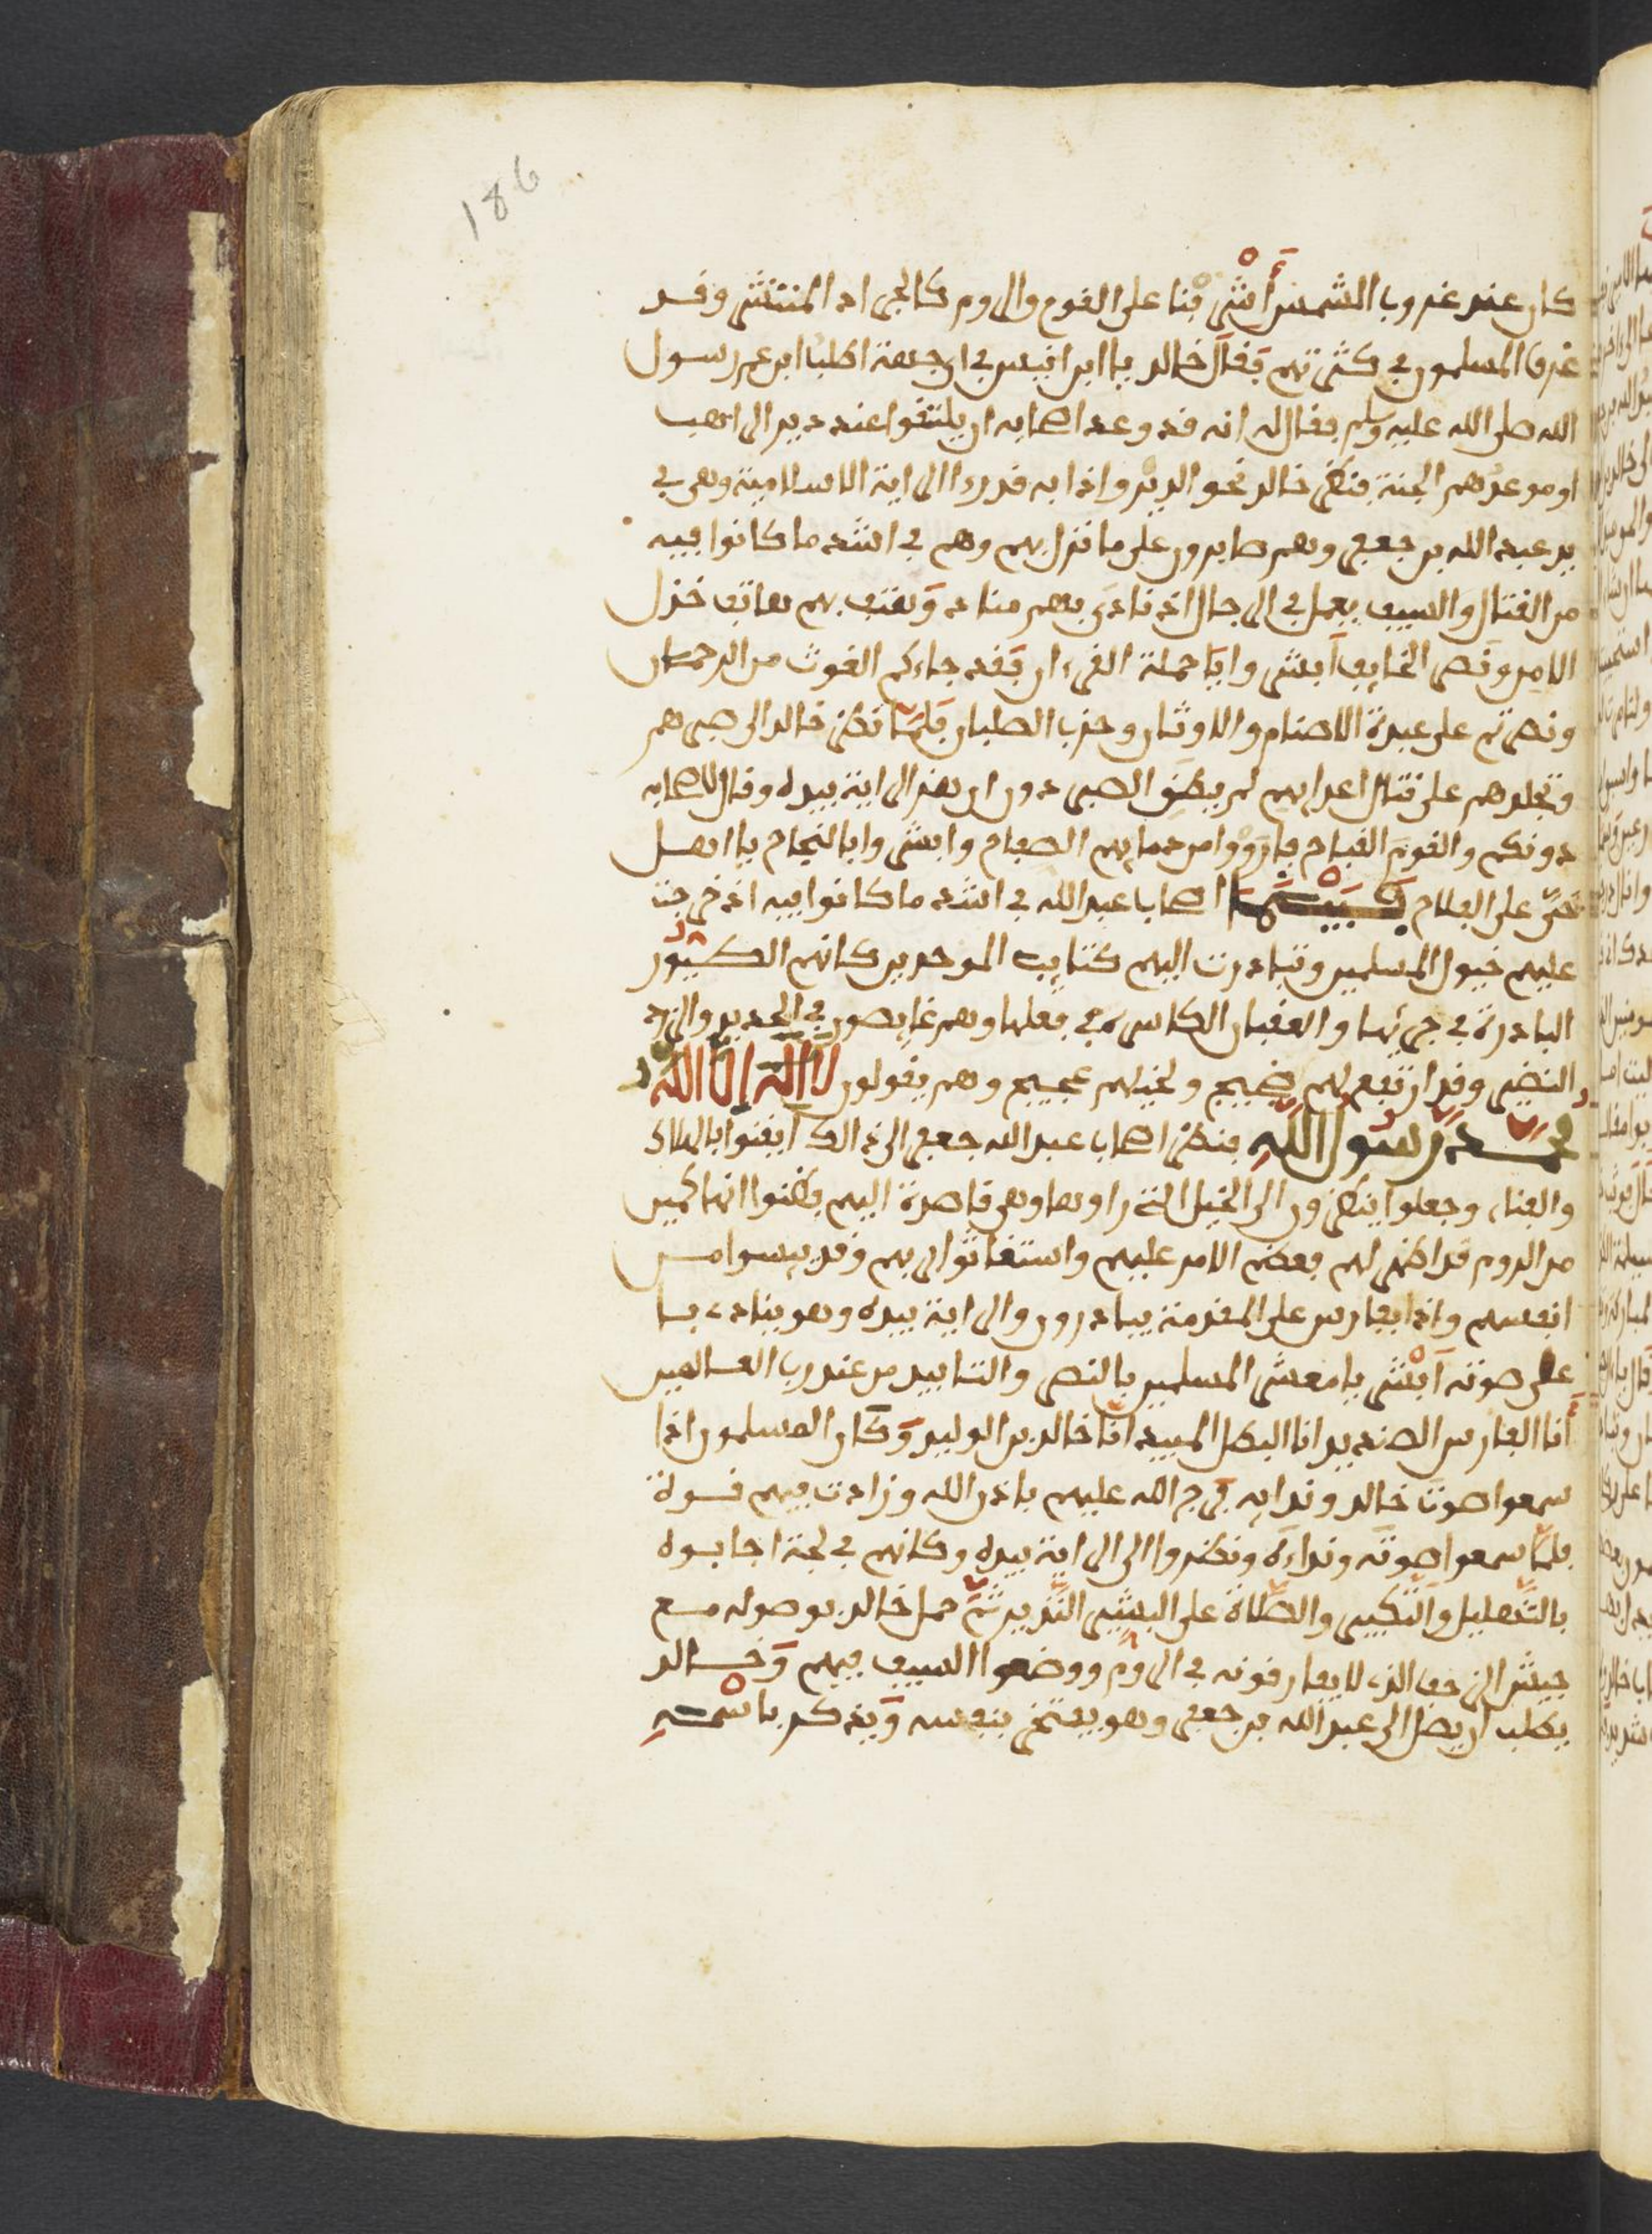 186
كان عند غروب الشمس أشرفنا على القوم والروم كالجراد المنتشر وقد
غرق المسلمون في كثرتهم فقال خالد يا ابن انيس في اي جهة اطلب ابن عم رسول
الله صلى الله عليه وسلم فقال له انه قد وعد اصحابه ان يلتقوا عند دير الراهب
او موعدهم الجنة فنظر خالد نحو الدير واذا به قد رءا الراية الاسلامية وهي في
يد عبد الله بن جعفر وهم صابرون على ما نزل بهم وهم في اشد ما كانوا فيه
من القتال والسيف يعمل في الرجال اذ نادى بهم مناد وهتف بهم هاتف خذل
الامن ونصر الخايف ابشروا يا حملة القرءان فقد جاءكم الغوث من الرحمان
ونصرتم على عبدة الاصنام والاوثان وحزب الصلبان فلما نظر خالد الى صبرهم
وتجلدهم على قتال اعدايهم لم يطق الصبر دون ان هز الراية بيده وقال لاصحابه
دونكم والقوم القباح فارووا من دمايهم الصفاح وابشروا بالنجاح يا اهل
حي على الفلاح فبينما اصحاب عبد الله في اشد ما كانوا فيه اذ خرجت
عليهم خيول المسلمين وتبادرت اليهم كتايب الموحدين كانهم الطيور
البادرة في جريها والعقبان الكاسرة في فعلها وهم غايصون في الحديد والزرد
النضير وقد ارتفع لهم ضجيج ولخيلهم عجيج وهم يقولون لا اله الا الله
محمد رسول الله فنظر اصحاب عبد الله جعفر الى ذالك ايقنوا بالهلاك
والفناء وجعلوا ينظرون الى الخيل التي راوها وهي قاصدة اليهم فظنوا انها كمين
من الروم قد اظهر لهم فعظم الامر عليهم واستغاثوا بربهم وقد ييسوا من
انفسهم واذا بفارس على المقدمة يبادرون والراية بيده وهو ينادي با
على صوته ابشروا يا معشر المسلمين بالنصر والتاييد من عند رب العالمين
أنا الفارس الصنديد انا البطل المبيد انا خالد بن الوليد وكان المسلمون اذا
سمعوا صوت خالد وندايه فرج الله عليهم باذن الله وزادت فيهم قوة
فلما سمعوا صوته ونداءه ونظروا الى الراية بيده وكانهم في لجة اجابوه
بالتهليل والتكبير والصلاة على البشير النذير ثم حمل خالد بوصوله مع
جيش الزحف الذي لا يفارقونه في الروم ووضعوا السيف فيهم وخالد
يطلب ان يصل الى عبد الله بن جعفر وهو يفتخر بنفسه ويذكر باسمه